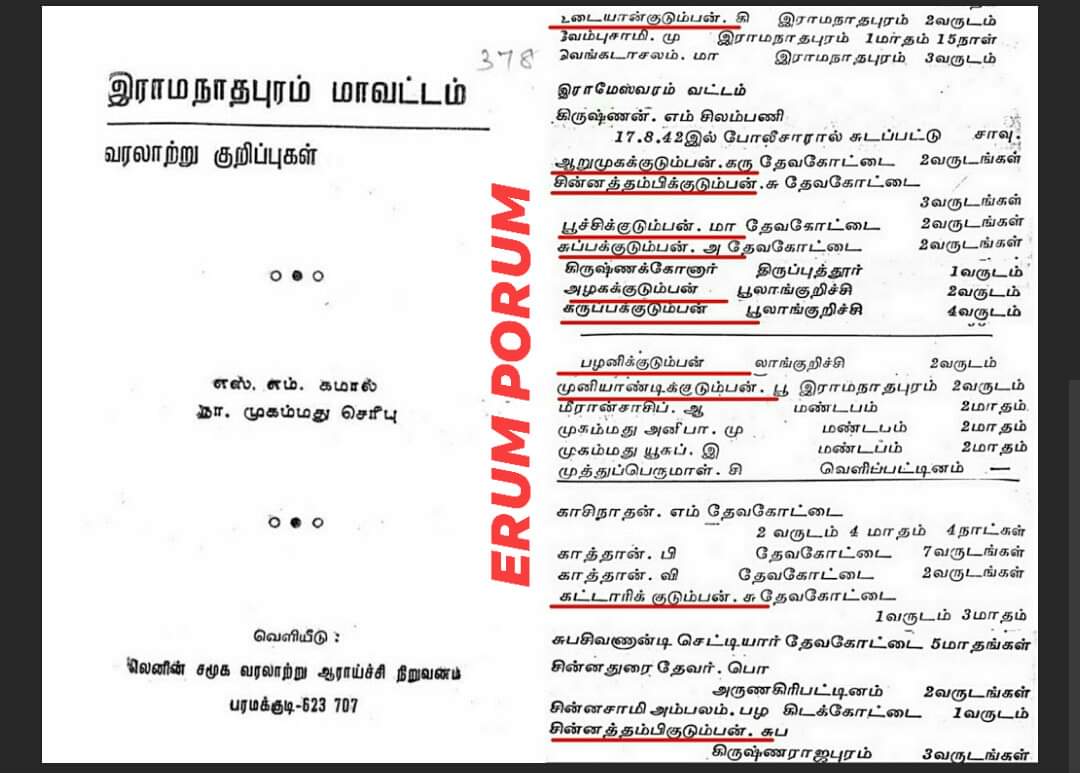 378
இராமநாதபுரம் மாவட்டம்
வரலாற்று குறிப்புகள்
எஸ். எம். கமால்
நா. முகம்மது செரிபு
வெளியீடு :
லெனின் சமூக வரலாற்று ஆராய்ச்சி நிறுவனம்
பரமக்குடி-623 707
ERUM PORUM
உடையான்குடும்பன். கி இராமநாதபுரம் 2வருடம்
வேம்புசாமி. மு இராமநாதபுரம் 1மாதம் 15நாள்
வெங்கடாசலம். மா இராமநாதபுரம் 3வருடம்
இராமேஸ்வரம் வட்டம்
கிருஷ்ணன். எம் சிலம்பணி
17.8.42இல் போலீசாரால் சுடப்பட்டு சாவு.
ஆறுமுகக்குடும்பன். கரு தேவகோட்டை 2வருடங்கள்
சின்னத்தம்பிக்குடும்பன். சு தேவகோட்டை
3வருடங்கள்
பூச்சிக்குடும்பன். மா தேவகோட்டை 2வருடங்கள்
சுப்பக்குடும்பன். அ தேவகோட்டை 2வருடங்கள்
கிருஷ்ணக்கோனார் திருப்புத்தூர் 1வருடம்
அழகக்குடும்பன் பூலாங்குறிச்சி 2வருடம்
கருப்பக்குடும்பன் பூலாங்குறிச்சி 4வருடம்
பழனிக்குடும்பன் லாங்குறிச்சி 2வருடம்
முனியாண்டிக்குடும்பன். பூ இராமநாதபுரம் 2வருடம்
மீரான்சாகிப். ஆ மண்டபம் 2மாதம்
முகம்மது அனிபா. மு மண்டபம் 2மாதம்
முகம்மது யூசுப். இ மண்டபம் 2மாதம்
முத்துப்பெருமாள். சி வெளிப்பட்டினம் —
காசிநாதன். எம் தேவகோட்டை
2 வருடம் 4 மாதம் 4நாட்கள்
காத்தான். பி தேவகோட்டை 7வருடங்கள்
காத்தான். வி தேவகோட்டை 2வருடங்கள்
கட்டாரிக் குடும்பன். சு தேவகோட்டை
1வருடம் 3மாதம்
சுபசிவணாண்டி செட்டியார் தேவகோட்டை 5மாதங்கள்
சின்னதுரை தேவர். பொ
அருணகிரிபட்டினம் 2வருடங்கள்
சின்னசாமி அம்பலம். பழ கிடக்கோட்டை 1வருடம்
சின்னத்தம்பிகுடும்பன். சுப
கிருஷ்ணராஜபுரம் 3வருடங்கள்